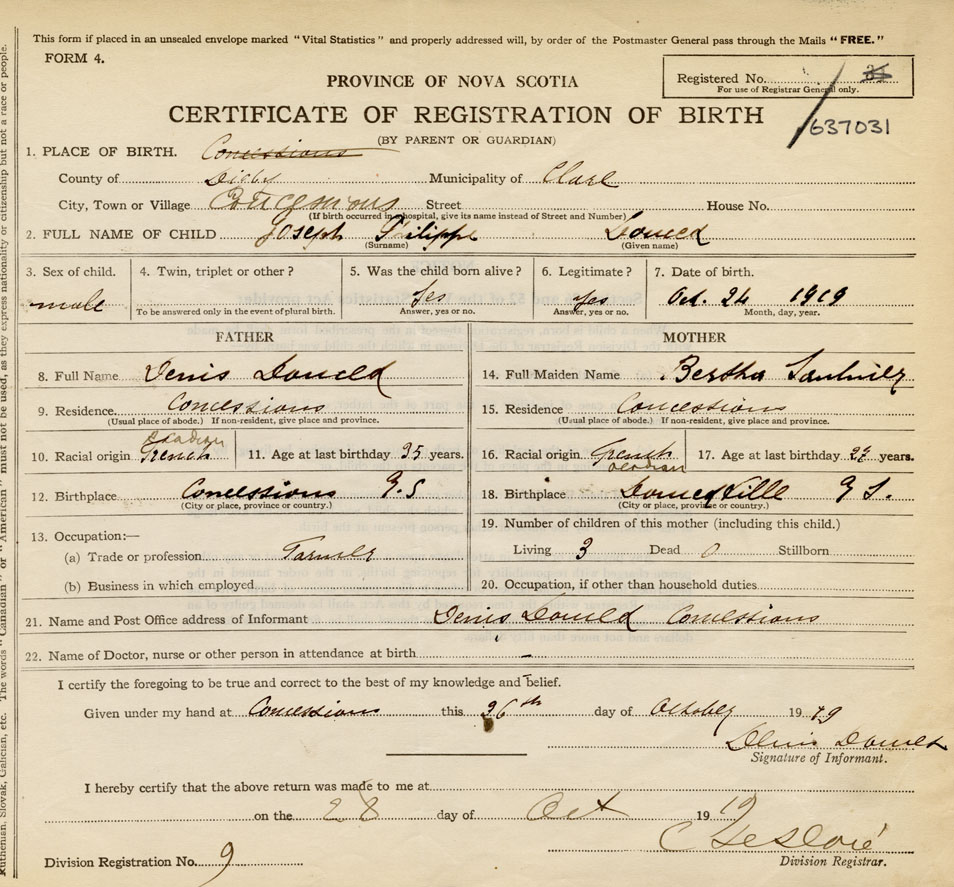 This form if placed in an unsealed envelope marked "Vital Statistics" and properly addressed will, by order of the Postmaster General pass through the Mails "FREE."
FORM 4.
PROVINCE OF NOVA SCOTIA
Registered No.
For use of Registrar General only.
CERTIFICATE OF REGISTRATION OF BIRTH
637031
(BY PARENT OR GUARDIAN)
1. PLACE OF BIRTH. Concessions
County of Digby Municipality of Clare
City, Town or Village Street House No.
(If birth occurred in hospital, give its name instead of Street and Number)
2. FULL NAME OF CHILD Joseph Philippe Doucet
(Surname) (Given name)
3. Sex of child. 4. Twin, triplet or other? 5. Was the child born alive? 6. Legitimate? 7. Date of birth.
male Yes Yes Oct. 24 1919
To be answered only in the event of plural birth. Answer, yes or no. Answer, yes or no. Month, day, year.
FATHER MOTHER
8. Full Name Denis Doucet 14. Full Maiden Name Bertha Saulnier
9. Residence. Concessions 15. Residence Concessions
(Usual place of abode.) If non-resident, give place and province. (Usual place of abode.) If non-resident, give place and province.
10. Racial origin French 11. Age at last birthday 35 years. 16. Racial origin French 17. Age at last birthday years.
12. Birthplace Concessions 18. Birthplace
(City or place, province or country.) (City or place, province or country.)
13. Occupation:— 19. Number of children of this mother (including this child.)
(a) Trade or profession Farmer Living 3 Dead 0 Stillborn
(b) Business in which employed 20. Occupation, if other than household duties
21. Name and Post Office address of Informant Denis Doucet Concessions
22. Name of Doctor, nurse or other person in attendance at birth –
I certify the foregoing to be true and correct to the best of my knowledge and belief.
Given under my hand at Concessions this 26th day of October 1919
Denis Doucet
Signature of Informant.
I hereby certify that the above return was made to me at
on the 28 day of Oct 1919
Division Registration No. 9 Division Registrar.
Ruthenian, Slovak, Galician, etc. The words "Canadian" or "American" must not be used, as they express nationality or citizenship but not a race or people.